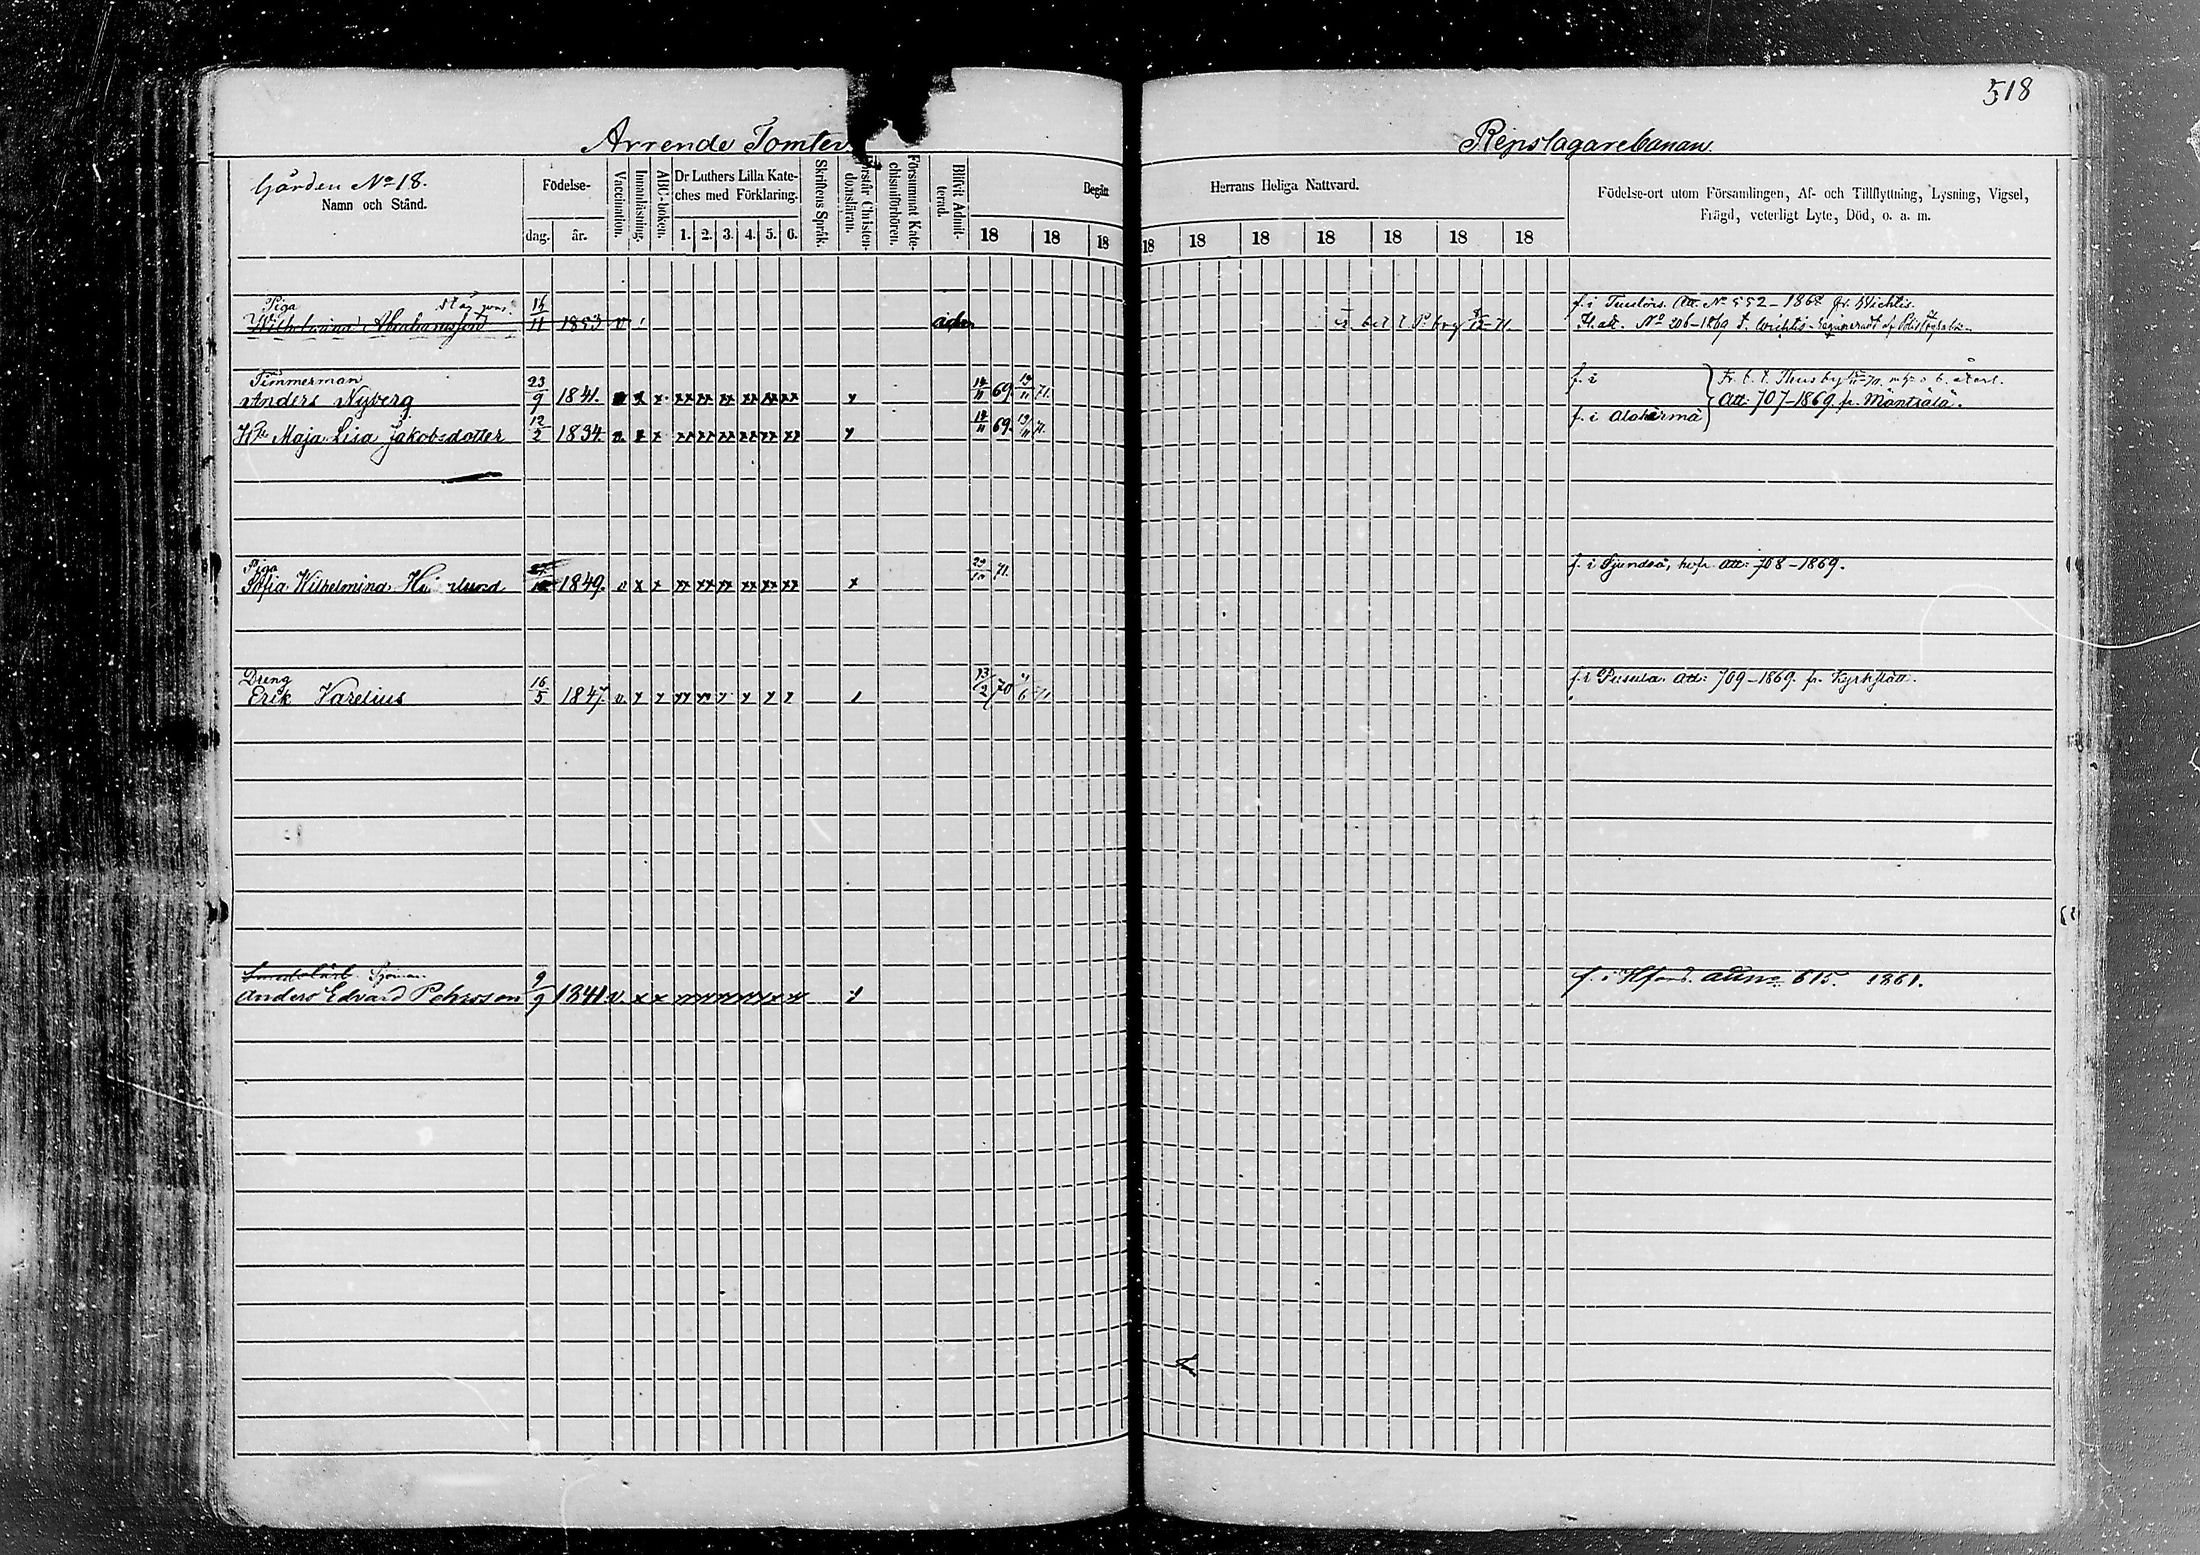 518
Arrende Tomten Repslagarebanan.
Gården No 18.
Namn och Stånd.
Födelse-
dag. år.
Vaccination.
Innanläsning.
ABC-boken.
Dr Luthers Lilla Kate-
ches med Förklaring.
1. 2. 3. 4. 5. 6.
Skriftens Språk.
Förstår Christen-
domsläran.
Försummat Kate-
chismiförhören.
Blifvit Admit-
terad.
Begått Herrans Heliga Nattvard.
18 18 18 18 18 18 18 18 18 18
Födelse-ort utom Församlingen, Af- och Tillflyttning, Lysning, Vigsel,
Frägd, veterligt Lyte, Död, o. a. m.
Piga
Wilhelmina Abrahamsson 16/11 1853 v adm
f. i Att. No 552-1868 fr. Wichtis.
No 206-1869 t. Wichtis
Timmerman
Anders Nyberg 23/9 1841. x x xx xx xx xx xx xx x 14/11 69. 19/11 71. f. i
Att: 707-1869 fr. Mäntsälä.
Maja Lisa Jakobsdotter 12/2 1834 v. x x xx xx xx xx xx xx x 14/11 69. 19/11 71. f. i Alahärmä
Piga
Sofia Wilhelmina 1849. v x x xx xx xx xx xx xx x 29/10 71. f. i Sjundeå, Att: 708-1869.
Dreng
Erik Varelius 16/5 1847. v. f. i Pusula. Att: 709-1869. fr. Kyrkslätt.
Sjöman
Anders Edvard Pehrsson 9/9 1841. v. x x f. i Hfors. 615. 1861.